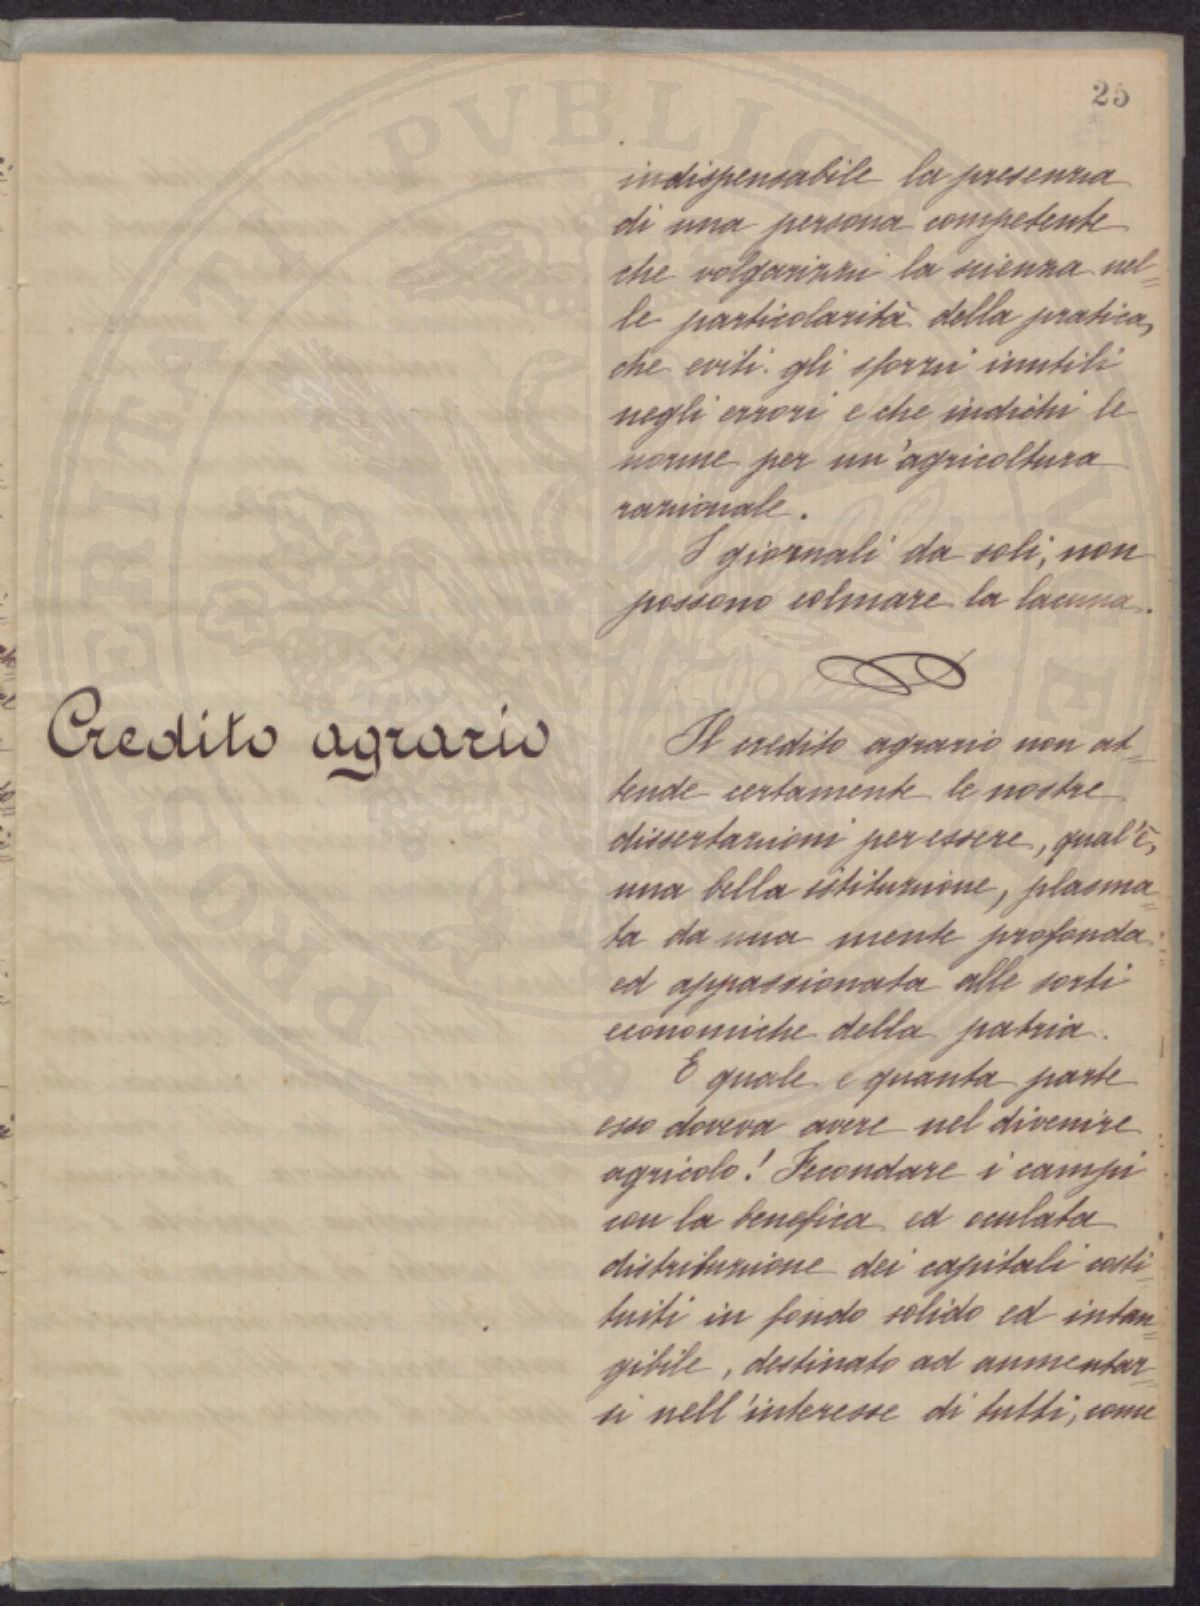 25
indispensabile la presenza
di una persona competente
che volgarizzi la scienza nel=
le particolarità della pratica,
che eviti gli sforzi inutili
negli errori e che indichi le
norme per un'agricoltura
razionale.
I giornali da soli, non
possono colmare la lacuna.
Credito agrario
Il credito agrario non at=
tende certamente le nostre
dissertazioni per essere, qual'è,
una bella istituzione, plasma=
ta da una mente profonda
ed appassionata alle sorti
economiche della patria.
E quale e quanta parte
esso doveva avere nel divenire
agricolo! Fecondare i campi
con la benefica ed oculata
distribuzione dei capitali costi=
tuiti in fondo solido ed intan=
gibile, destinato ad aumentar=
si nell'interesse di tutti, come
PROSPERITATI PVBLICAE